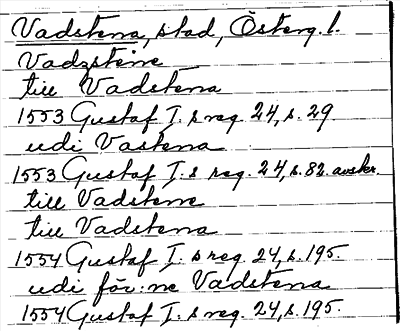 Vadstena, stad, Österg. l.
Vadzsteine
till Vadstena
1553 Gustaf I.s reg. 24, s. 29
udi Vastena
1553 Gustaf I.s reg. 24, s. 82. avskr.
till Vadstene
till Vadstena
1554 Gustaf I.s reg. 24, s. 195.
udi för:ne Vadstena
1554 Gustaf I.s reg. 24, s. 195.